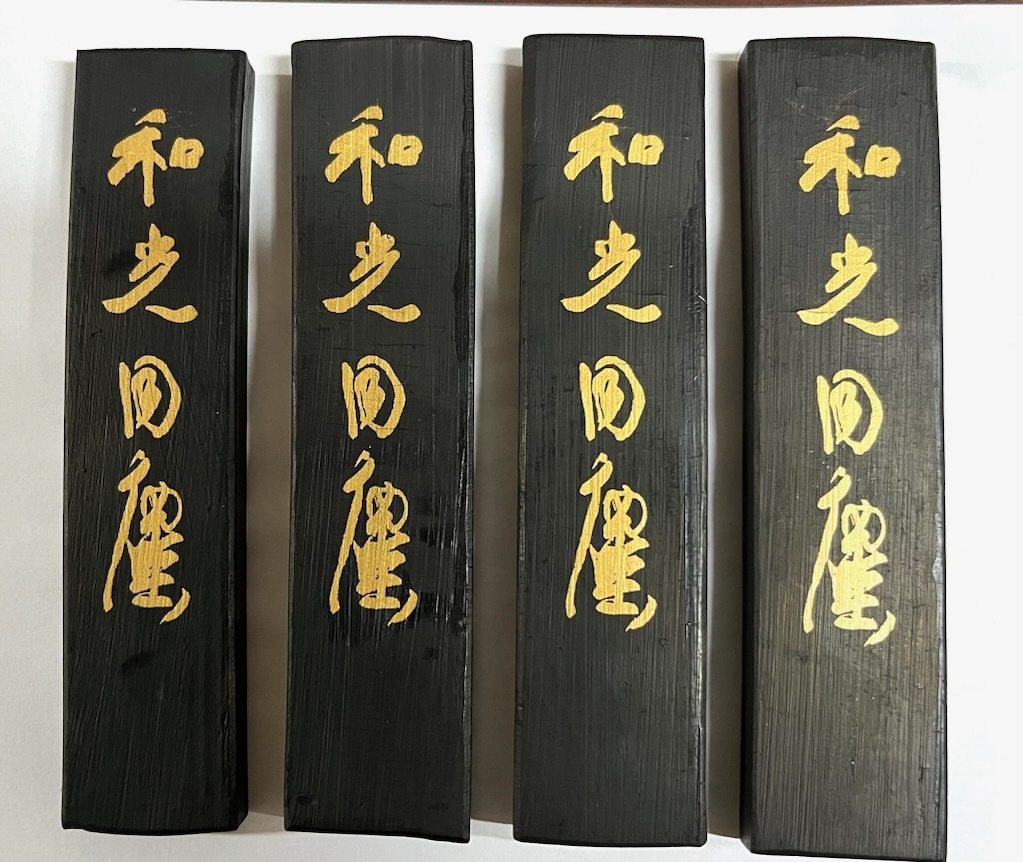 和光同塵
和光同塵
和光同塵
和光同塵